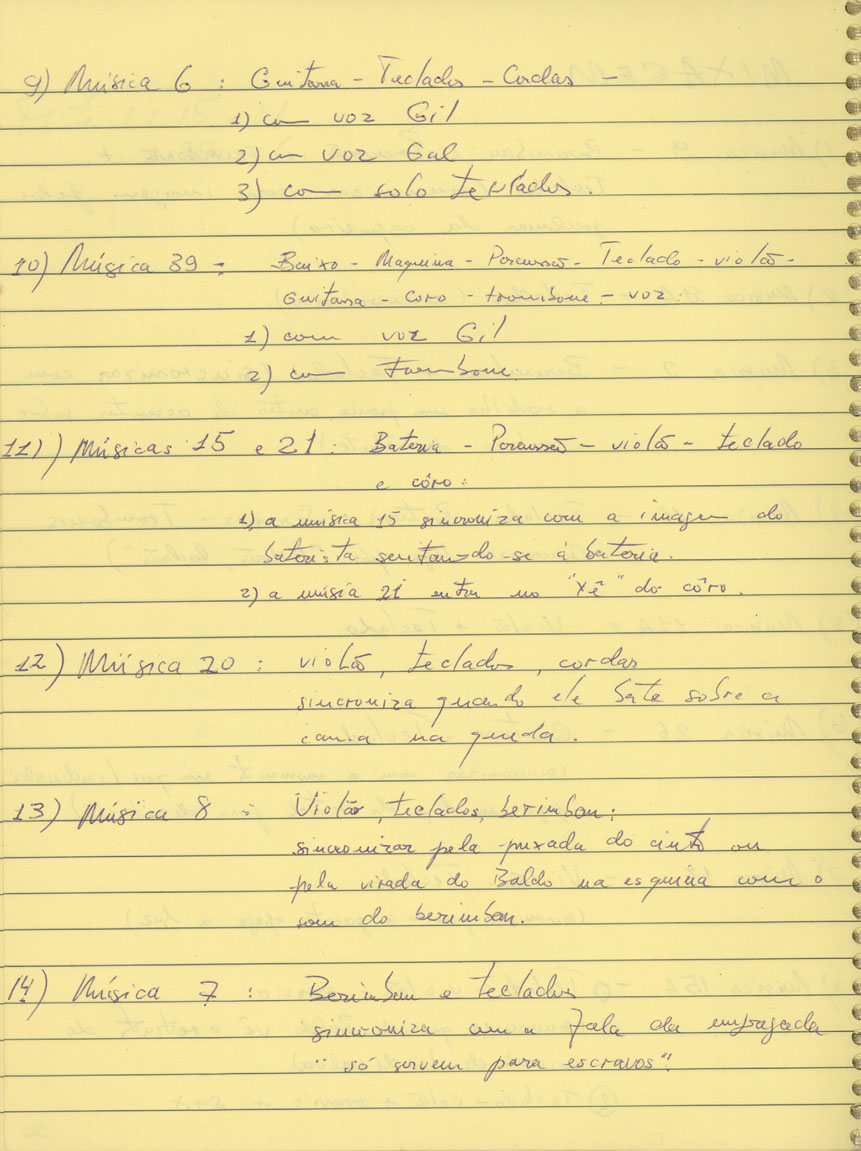 9) Música 6 : Guitarra - Teclados - Cordas -
1) com voz Gil
2) com voz Gal
3) com solo teclados.
10) Música 39 - Baixo - Maquina - Percussão - Teclado - violão -
Guitarra - coro - trombone - voz.
1) com voz Gil
2) com trombone
11) Músicas 15 e 21 : Bateria - Percussão - violão - teclado
e côro :
1) a música 15 sincroniza com a imagem do
baterista sentando-se à bateria.
2) a música 21 entra no "xê" do côro.
12) Música 20 : violão, teclados, cordas
sincroniza quando ele bate sobre a
na queda.
13) Música 8 : Violão, teclados, berimbau :
sincronizar pela puxada do cinto ou
pela virada do Baldo na esquina com o
som do berimbau.
14) Música 7 : Berimbau e teclados
sincroniza com a fala da empregada
"só servem para escravos".